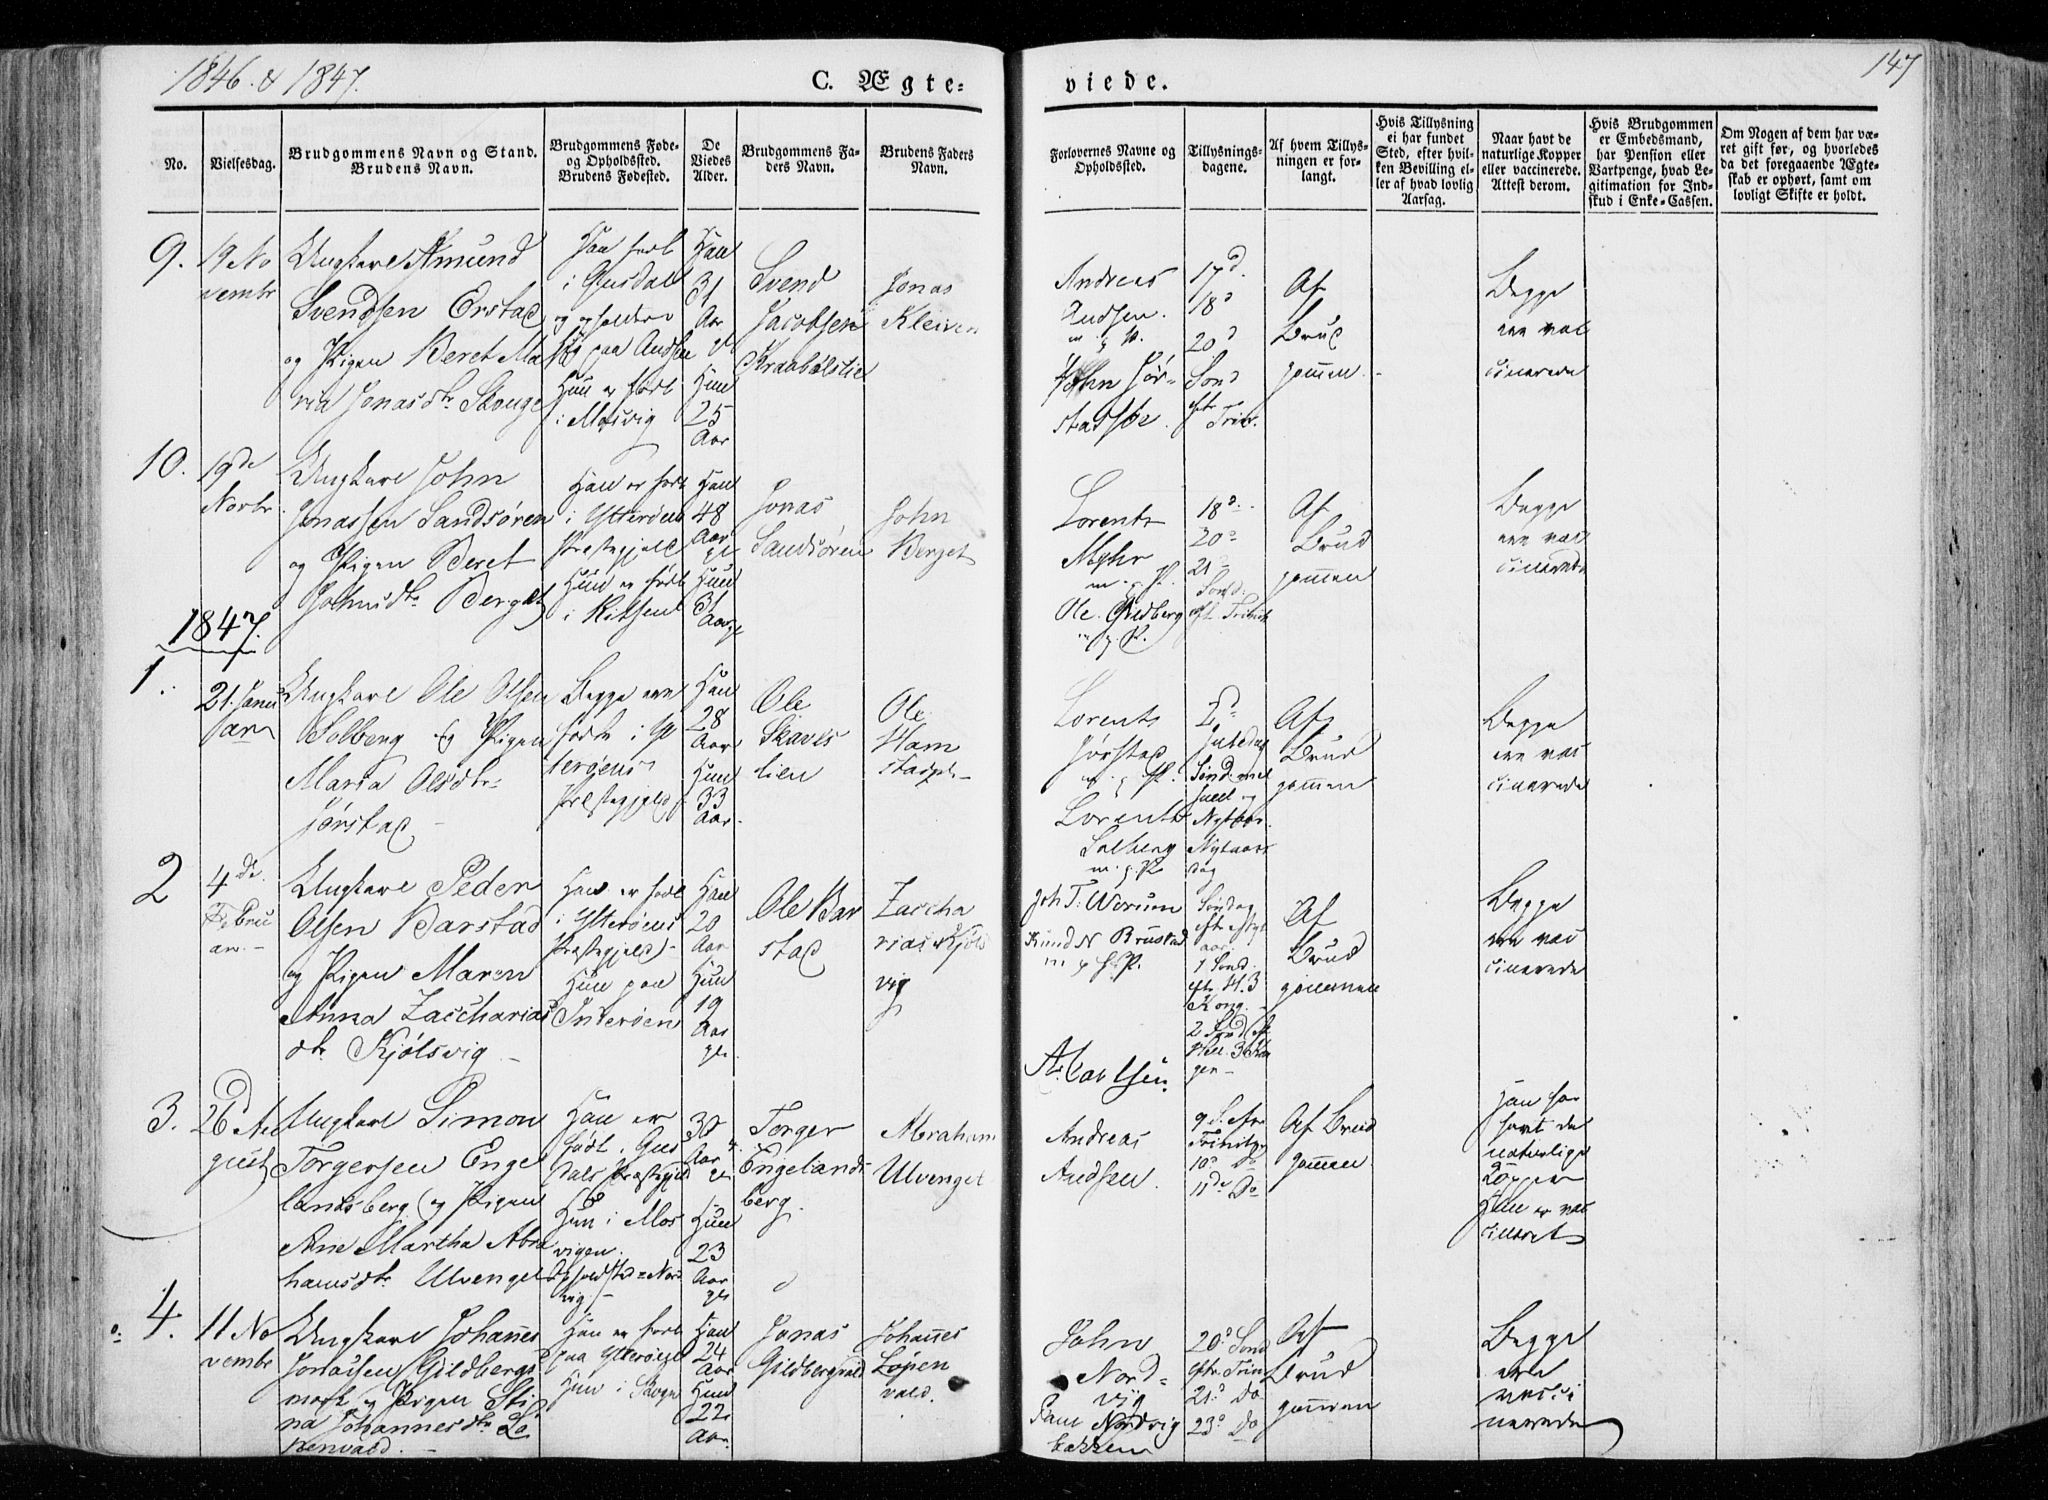 1846 & 1847.
C. Ægte-
viede.
147
No.
Vielsesdag.
Brudgommens Navn og Stand.
Brudens Navn.
Brudgommens Føde-
og Opholdssted.
Brudens Fødested.
De
Viedes
Alder.
Brudgommens Fa-
ders Navn.
Brudens Faders
Navn.
Forlovernes Navne og
Opholdssted.
Tillysnings-
dagene.
Af hvem Tillys-
ningen er for-
langt.
Hvis Tillysning
ei har fundet
Sted, efter hvil-
ken Bevilling el-
ler af hvad lovlig
Aarsag.
Naar havt de
naturlige Kopper
eller vaccinerede.
Attest derom.
Hvis Brudgommen
er Embedsmand,
har Pension eller
Vartpenge, hvad Le-
gitimation for Ind-
skud i Enke-Cassen.
Om Nogen af dem har væ-
ret gift før, og hvorledes
da det foregaaende Ægte-
skab er ophørt, samt om
lovligt Skifte er holdt.
9.
19 No
vembr
Ungkarl Amund
Svendsen Erstad
og Pigen Beret Ma
ria Jonasdtr Skouge
Han født
i Gusdal
og opholder
sig paa Andsen
Hun er født
i Mosvig
Han
31
Aar
Hun
25
Aar
Svend
Jacobsen
Kraabølstie
Jonas
Kleiven
Andreas
Andsen.
John Jør-
stad
17d.
18d
20d
Sønd
eftr Trin.
Af
Brud
gommen
Begge
ere vac
cinerede
10.
19de
Novbr
Ungkarl John
Jonassen Sandsøren
og Pigen Beret
Johnsdtr Berget
Han er født
i Ytterøens
Præstegjeld
Hun er født
i
Han
48
Aar
Hun
31
Aar
Jonas
Sandsøren
John
Berget
Lorents
Myhr
m. p. P.
Ole Gildberg
m. p. P.
18d
20d
21d
Sønd.
eft. Trinit
Af
Brud
gommen
Begge
ere vac
cinerede
1847.
1.
21. Janu
ar
Ungkarl Ole Olsen
Solberg og Pigen
Maria Olsdtr
Jørstad
Begge ere
født i Y
terøens
Præstegjeld
Han
28
Aar
Hun
33
Aar
Ole
Skaves
lien
Ole
Ham
Lorents
Jørstad
m. p. P.
Lorents
Solberg
m. p. P.
2d
Juledag
Sønd. mel
Juul og
Nytaar
Nytaars
dag
Af
Brud
gommen
Begge
ere vac
cinerede
2
4de
Februar
Ungkarl Peder
Olsen Barstad
og Pigen Maren
Anna Zaccharias
dtr Kjølsvig
Han er født
i Ytterøens
Præstegjeld
Hun paa
Inderøen
Han
20
Aar
Hun
19
Aar
Ole Bar
stad
Zaccha
rias Kjøls
vig
Joh. T. Werum
Knud N Brustad
m p P.
A. Carlsen
Søndag
eftr Nyt
aar
1 Sønd.
eftr H. 3
Kong
2 Sønd
Hell. 3 Kon
ger
Af
Brud
gommen
Begge
ere vac
cinerede
3.
26d Au
gust
Ungkarl Simon
Torgersen Enge
landsberg og Pigen
Ane Martha Abra
hamsdtr Ulvenget
Han er
født i Gus
dals Præstegjeld
Hun i Mos
vigen.
Opholdsted Nord
vig
30
Aar
Hun
23
Aar
Torger
Engelands
berg.
Abraham
Ulvenget
Andreas
Andsen.
9 S. eftr
Trinit
10d Do
11d Do
Af Brud
gommen
Han har
havt de
naturlige
Kopper
Hun er vac
cineret
4.
11 No
vembr
Ungkarl Johannes
Jonassen Gildbergs
mark og Pigen Sti
na Johannesdtr Lø
penvald.
Han er født
paa Ytterøen
Hun i Skogn
Han
24
Aar
Hun
22
Aar
Jonas
Johannes
Løpen
vald.
John
Nord-
vig
Paul Nordvig
bakken
20d Sønd
eftr Trin
21d Do
23d Do
Af
Brud
gommen
Begge
ere
vacci
nerede